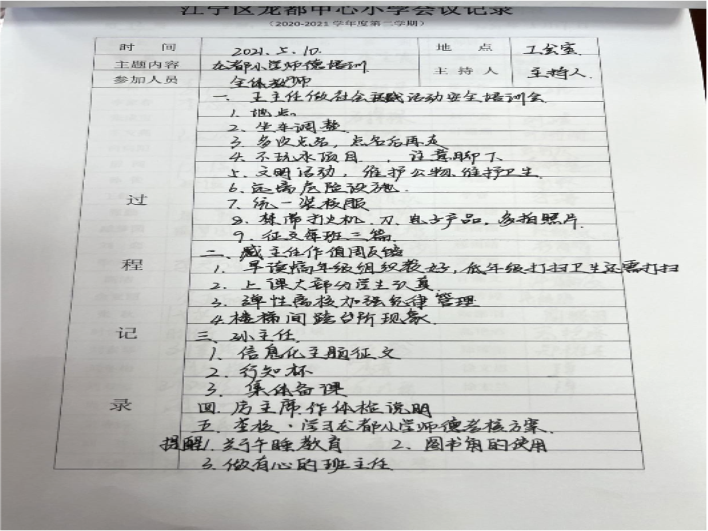 江宁区龙都中心小学会议记录
(2020-2021学年度第二学期)
时间 2021.5.10 地点 工会室
主题内容 龙都小学师德培训 主持人 主持人
参加人员 全体教师
过程记录
一、王主任做社会实践活动安全培训会
1. 地点。
2. 坐车调整
3. 多次点名,点名后再走
4. 不玩水项目,注意脚下
5. 文明活动,维护公物、维护卫生
6. 远离危险设施.
7. 统一装校服
8. 禁带打火机、刀、电子产品,多拍照片.
9. 征文每班三篇.
二、戚主任作值周反馈
1. 早读高年级组织教好,低年级打扫卫生还需打扫
2. 上课大部分学生认真.
3. 弹性离校加强纪律管理
4. 楼梯间跨台阶现象.
三、孙主任
1. 信息化主题征文
2. 行知杯
3. 集体备课
四、房主席作体检说明
五、查校.学习龙都小学师德考核方案.
提醒1. 关于午睡教育 2. 图书角的使用
3. 做有心的班主任